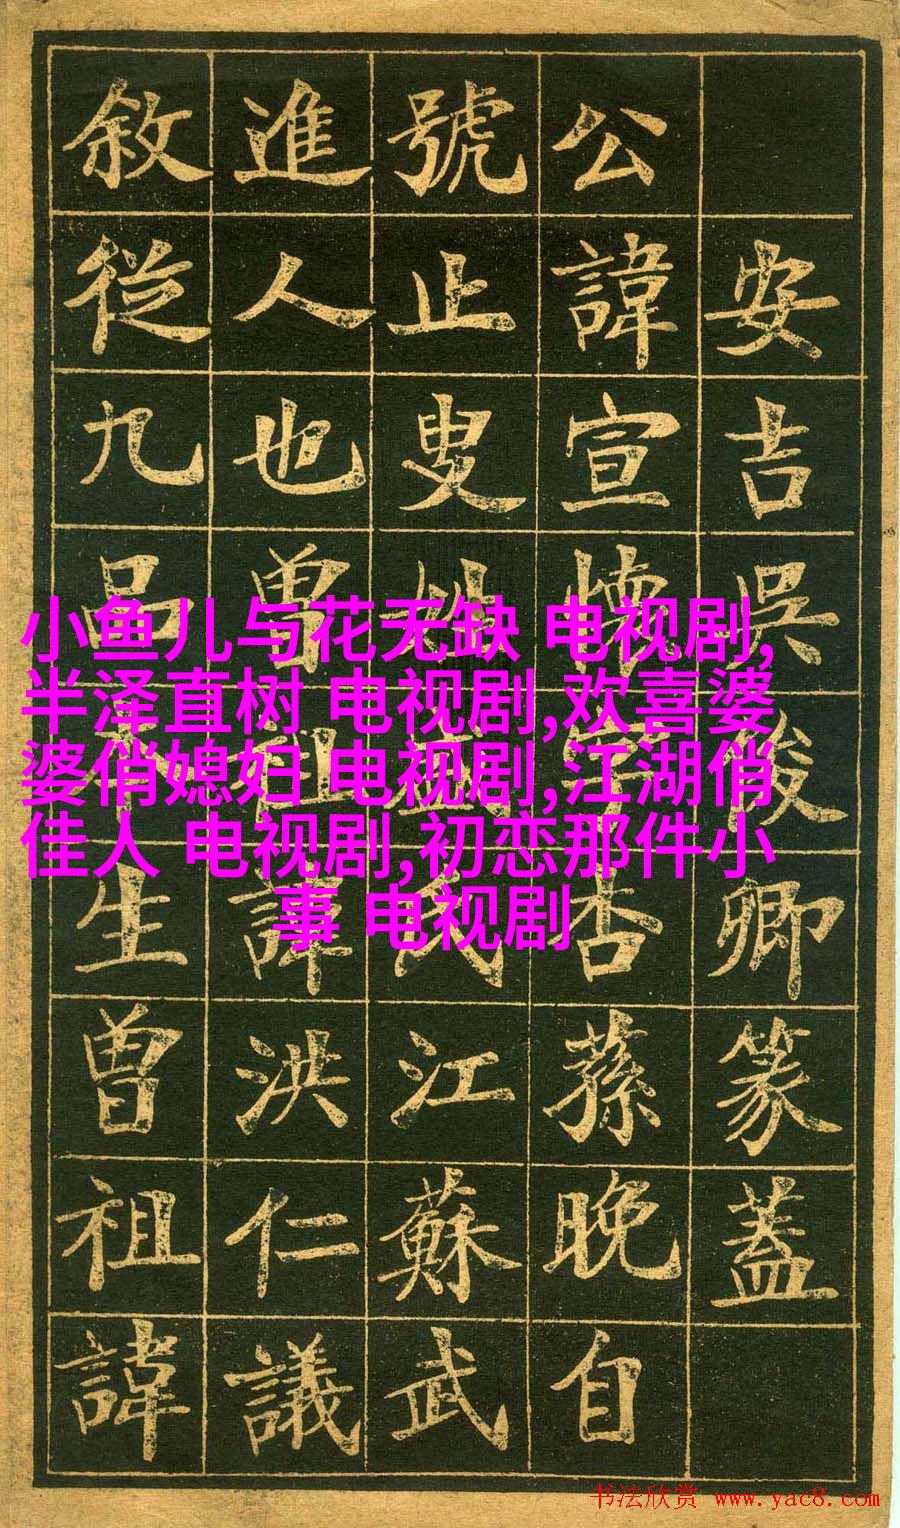 安吉吳俊卿篆蓋
公諱宣懷字杏蓀晚自
號止叟姓盛氏江蘇武
進人也曾祖諱洪仁議
敘從九品生曾祖諱
小鱼儿与花无缺 电视剧,
半泽直树 电视剧,欢喜婆
婆俏媳妇 电视剧,江湖俏
佳人 电视剧,初恋那件小
事 电视剧
书法欣赏 www.yac8.com